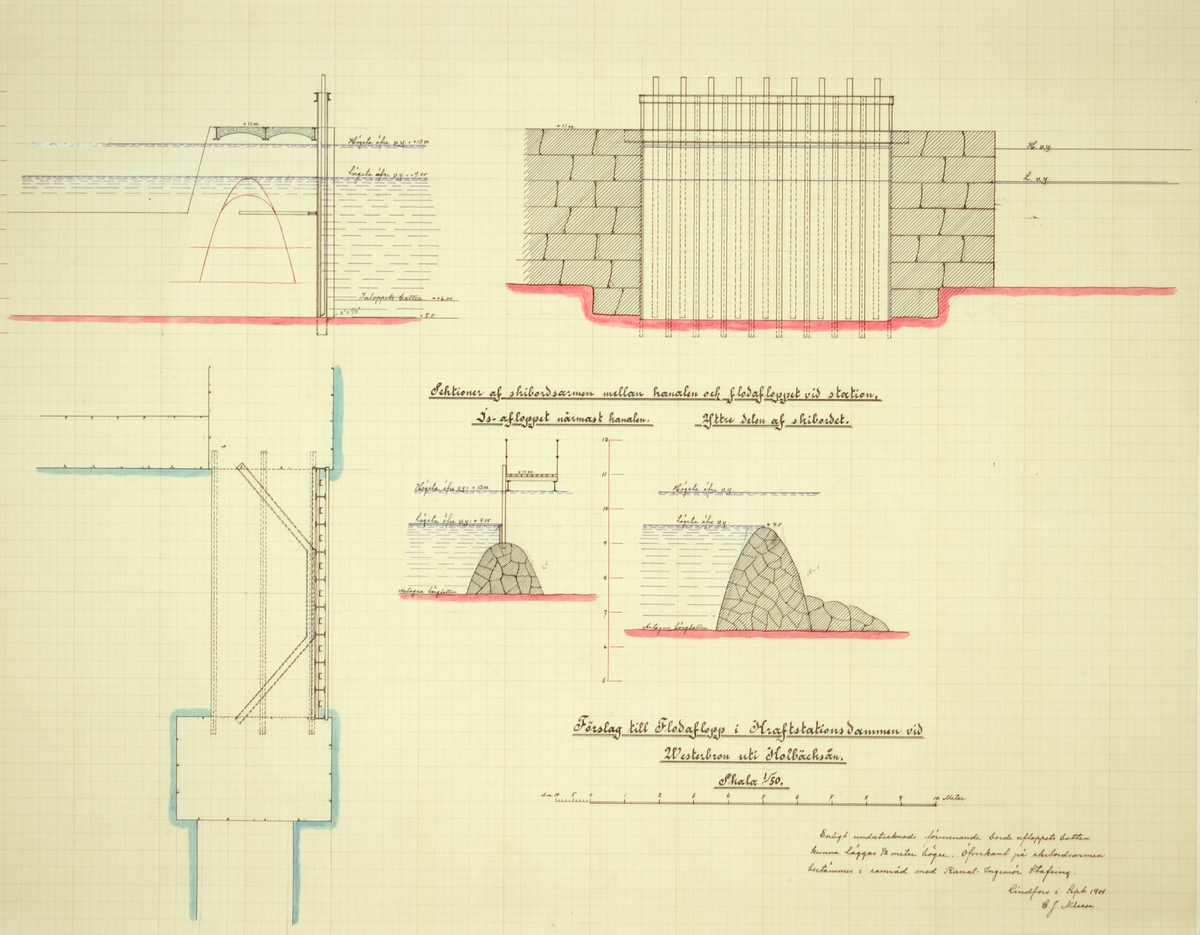 + 11.00
Högsta öfre v.y. + 10.00
Lägsta öfre v.y. + 9.00
Inloppets botten + 6.00
+ 5.5
+ 11.00
H. v.y.
L. v.y.
Sektioner af skibordsarmen mellan kanalen och flodafloppet vid station.
Is-afloppet närmast kanalen. Yttre delen af skibordet.
+ 11.00
Högsta öfre v.y.
Lägsta öfre v.y.
Antagna bärgbotten
12
11
10
9
8
7
6
5
Högsta öfre v.y.
Lägsta öfre v.y.
+ 9.5
Antagna bärgbotten
Förslag till Flodaflopp i Kraftstationsdammen vid
Westerbron uti Kolbäcksån.
Skala 1/50.
dm 10 5 0 1 2 3 4 5 6 7 8 9 10 Meter
Enligt undertecknads förmenande borde afloppets botten
kunna läggas ½ meter högre. Öfverkant på skibordsarmen
bestämmes i samråd med Kanal-Ingeniör
Lindfors i Sept. 1901
C J Nilsson.